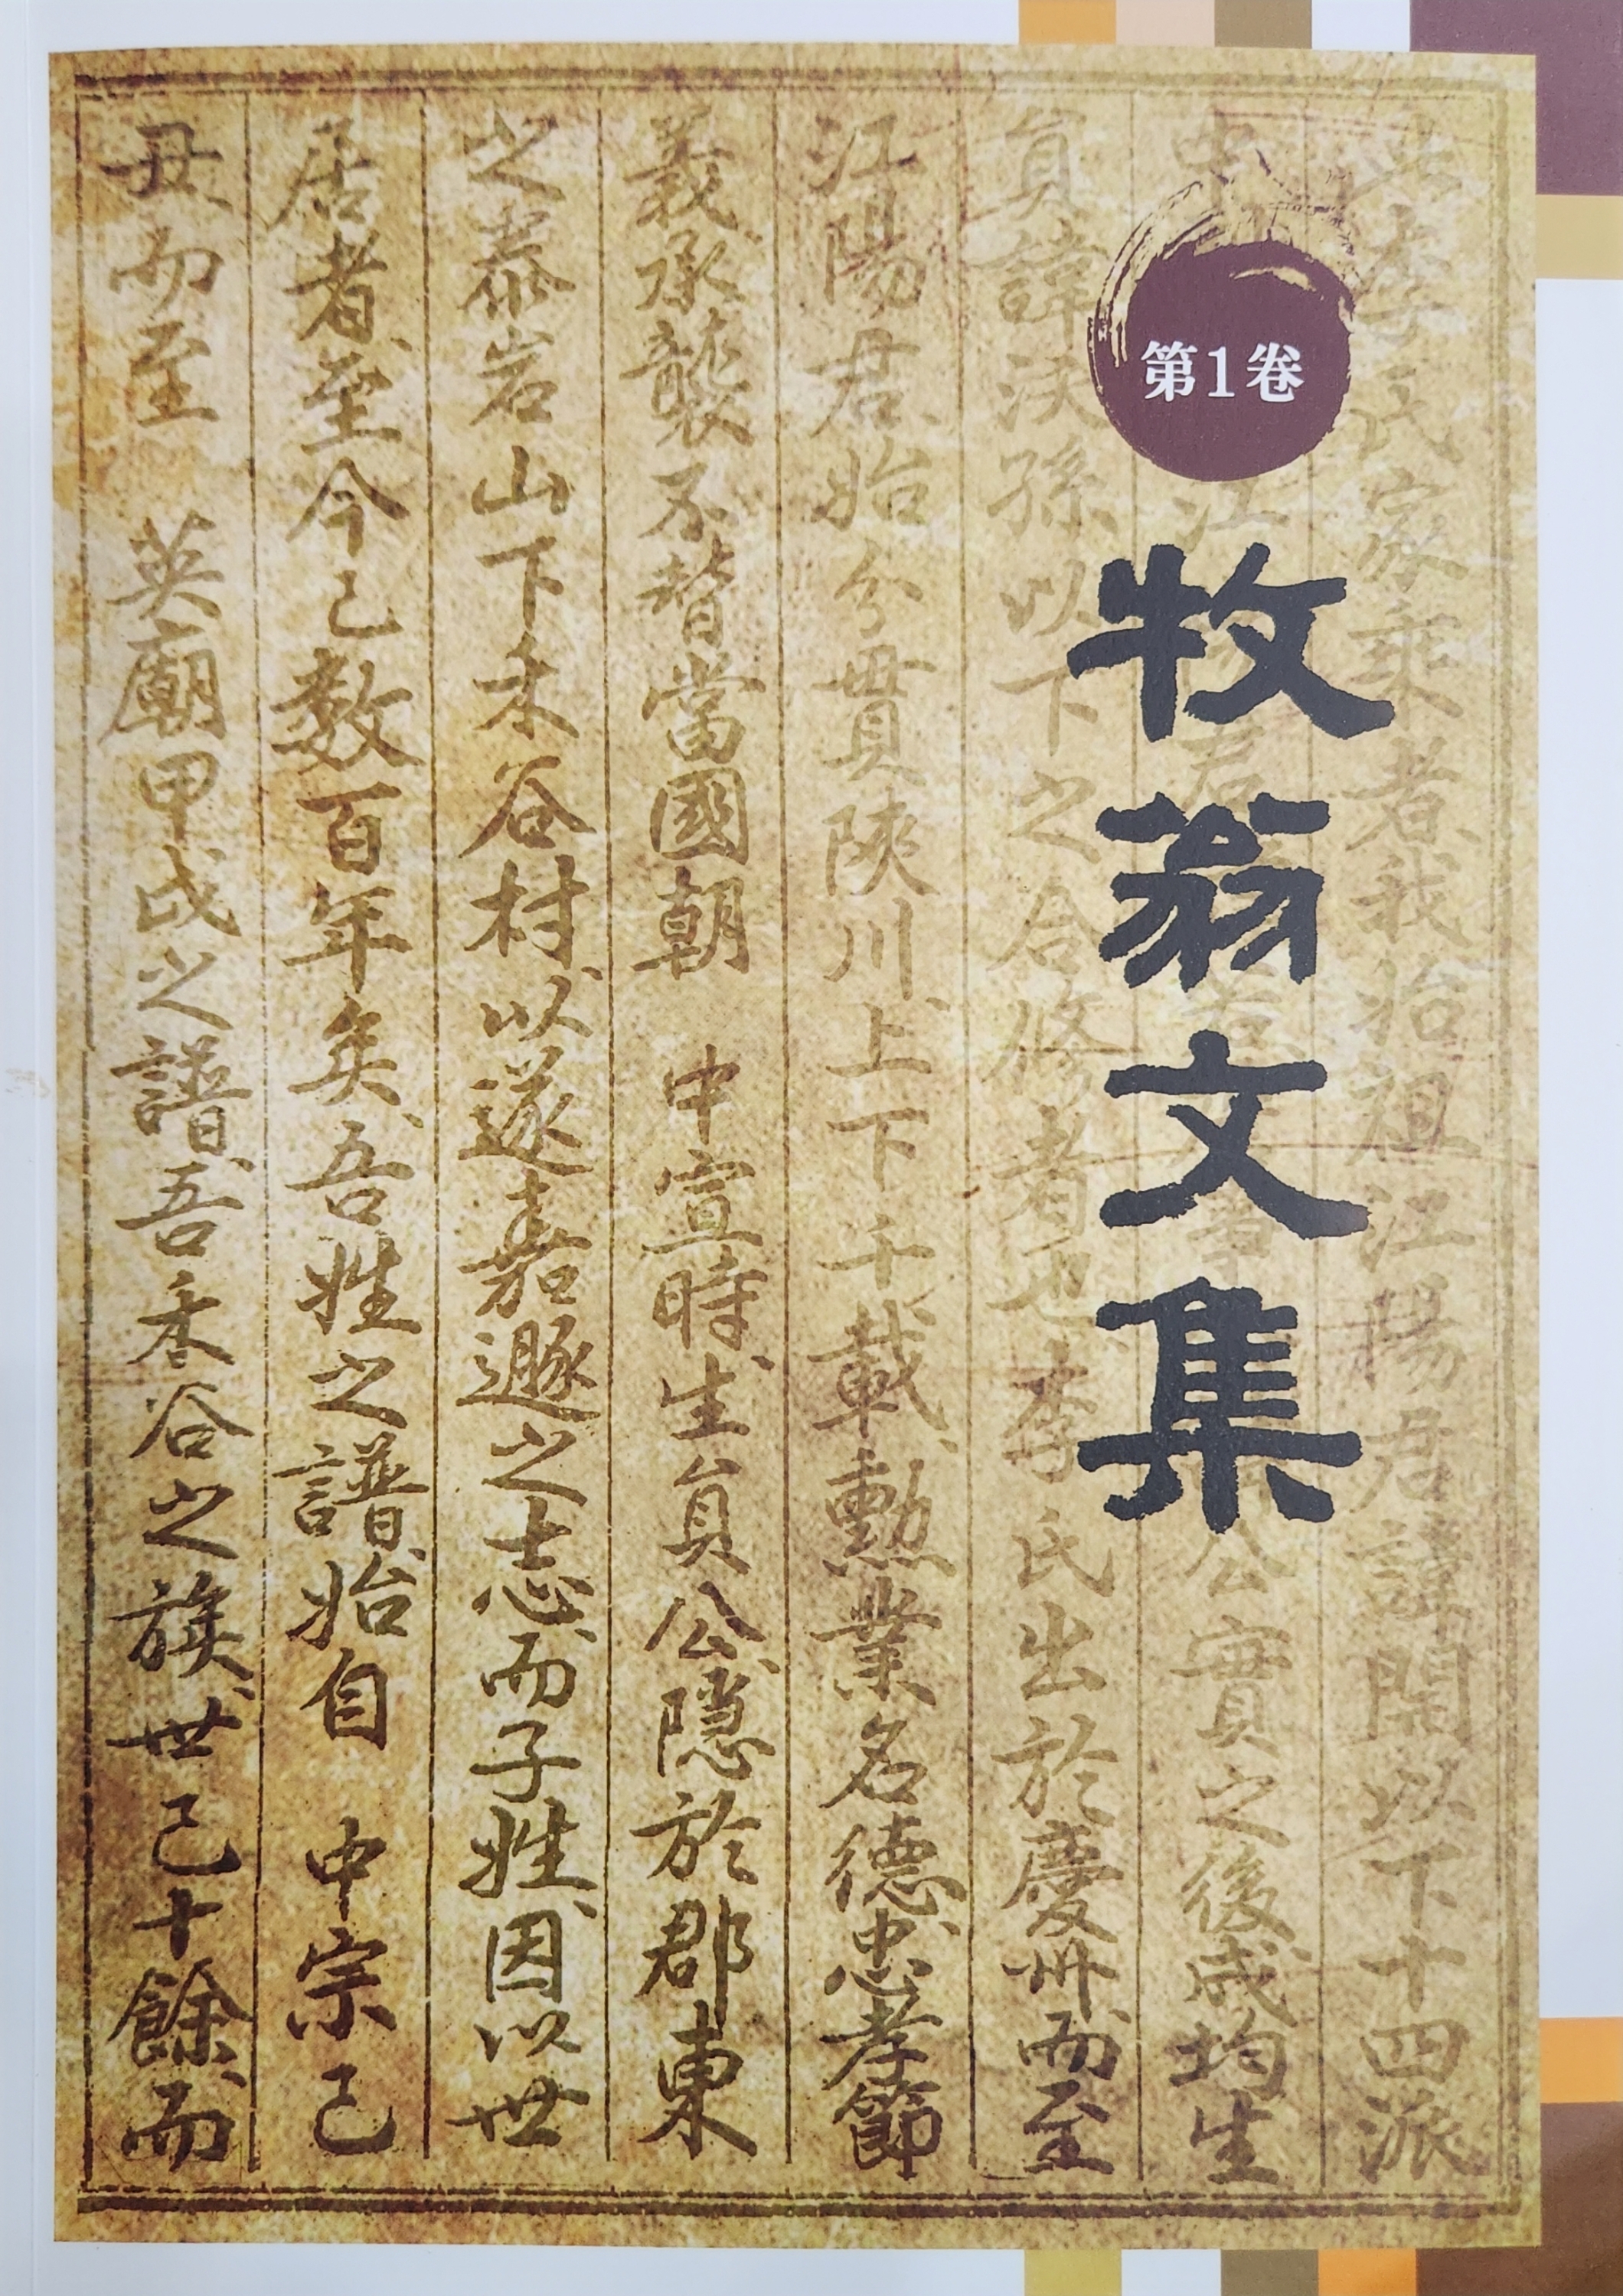 第1卷
牧翁文集
李氏家乘者我始祖江陽君諱開以下十四派
江 公實之後成均生
員諱浹孫以下之合修者也李氏出於慶州而至
江陽君始分貫陜川上下千載勲業名德忠孝節
義承襲不替當國朝 中宣時生員公隱於郡東
之泰岩山下禾谷村以遂嘉遯之志而子姓因以世
居者至今已數百年矣吾姓之譜始自 中宗己
丑而至 英廟甲戌之譜吾禾谷之族世已十餘而